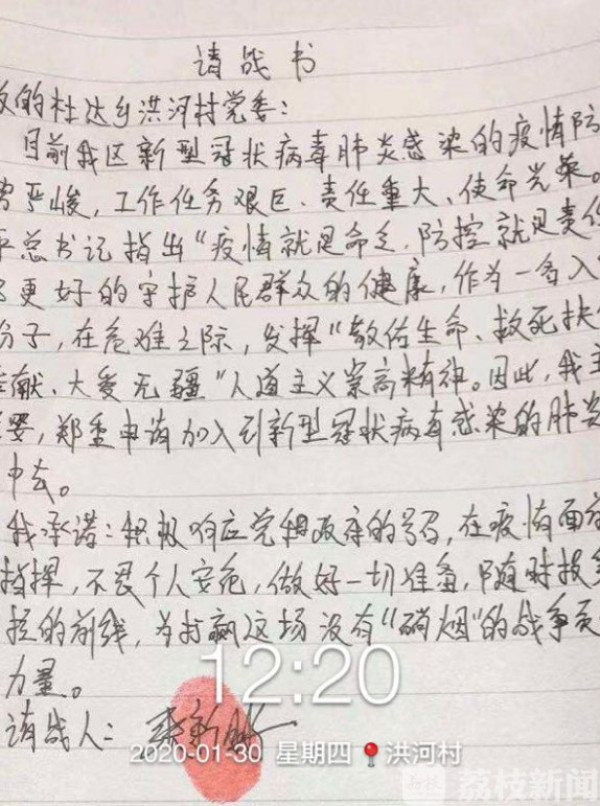 请战书
的杜达乡洪河村党委:
目前我区新型冠状病毒肺炎感染的疫情防
严峻,工作任务艰巨、责任重大、使命光荣。
平总书记指出“疫情就是命令,防控就是责任
更好的守护人民群众的健康,作为一名入
分子,在危难之际,发挥“敬佑生命、救死扶
献、大爱无疆”人道主义崇高精神。因此,我主
要,郑重申请加入到新型冠状病毒感染的肺炎
中去。
我承诺:积极响应党和政府的号召,在疫情面前
指挥,不畏个人安危,做好一切准备,随时投
控的前线,为打赢这场没有“硝烟”的战争贡
力量。
请战人:
12:20
2020-01-30 星期四 洪河村
荔枝新闻